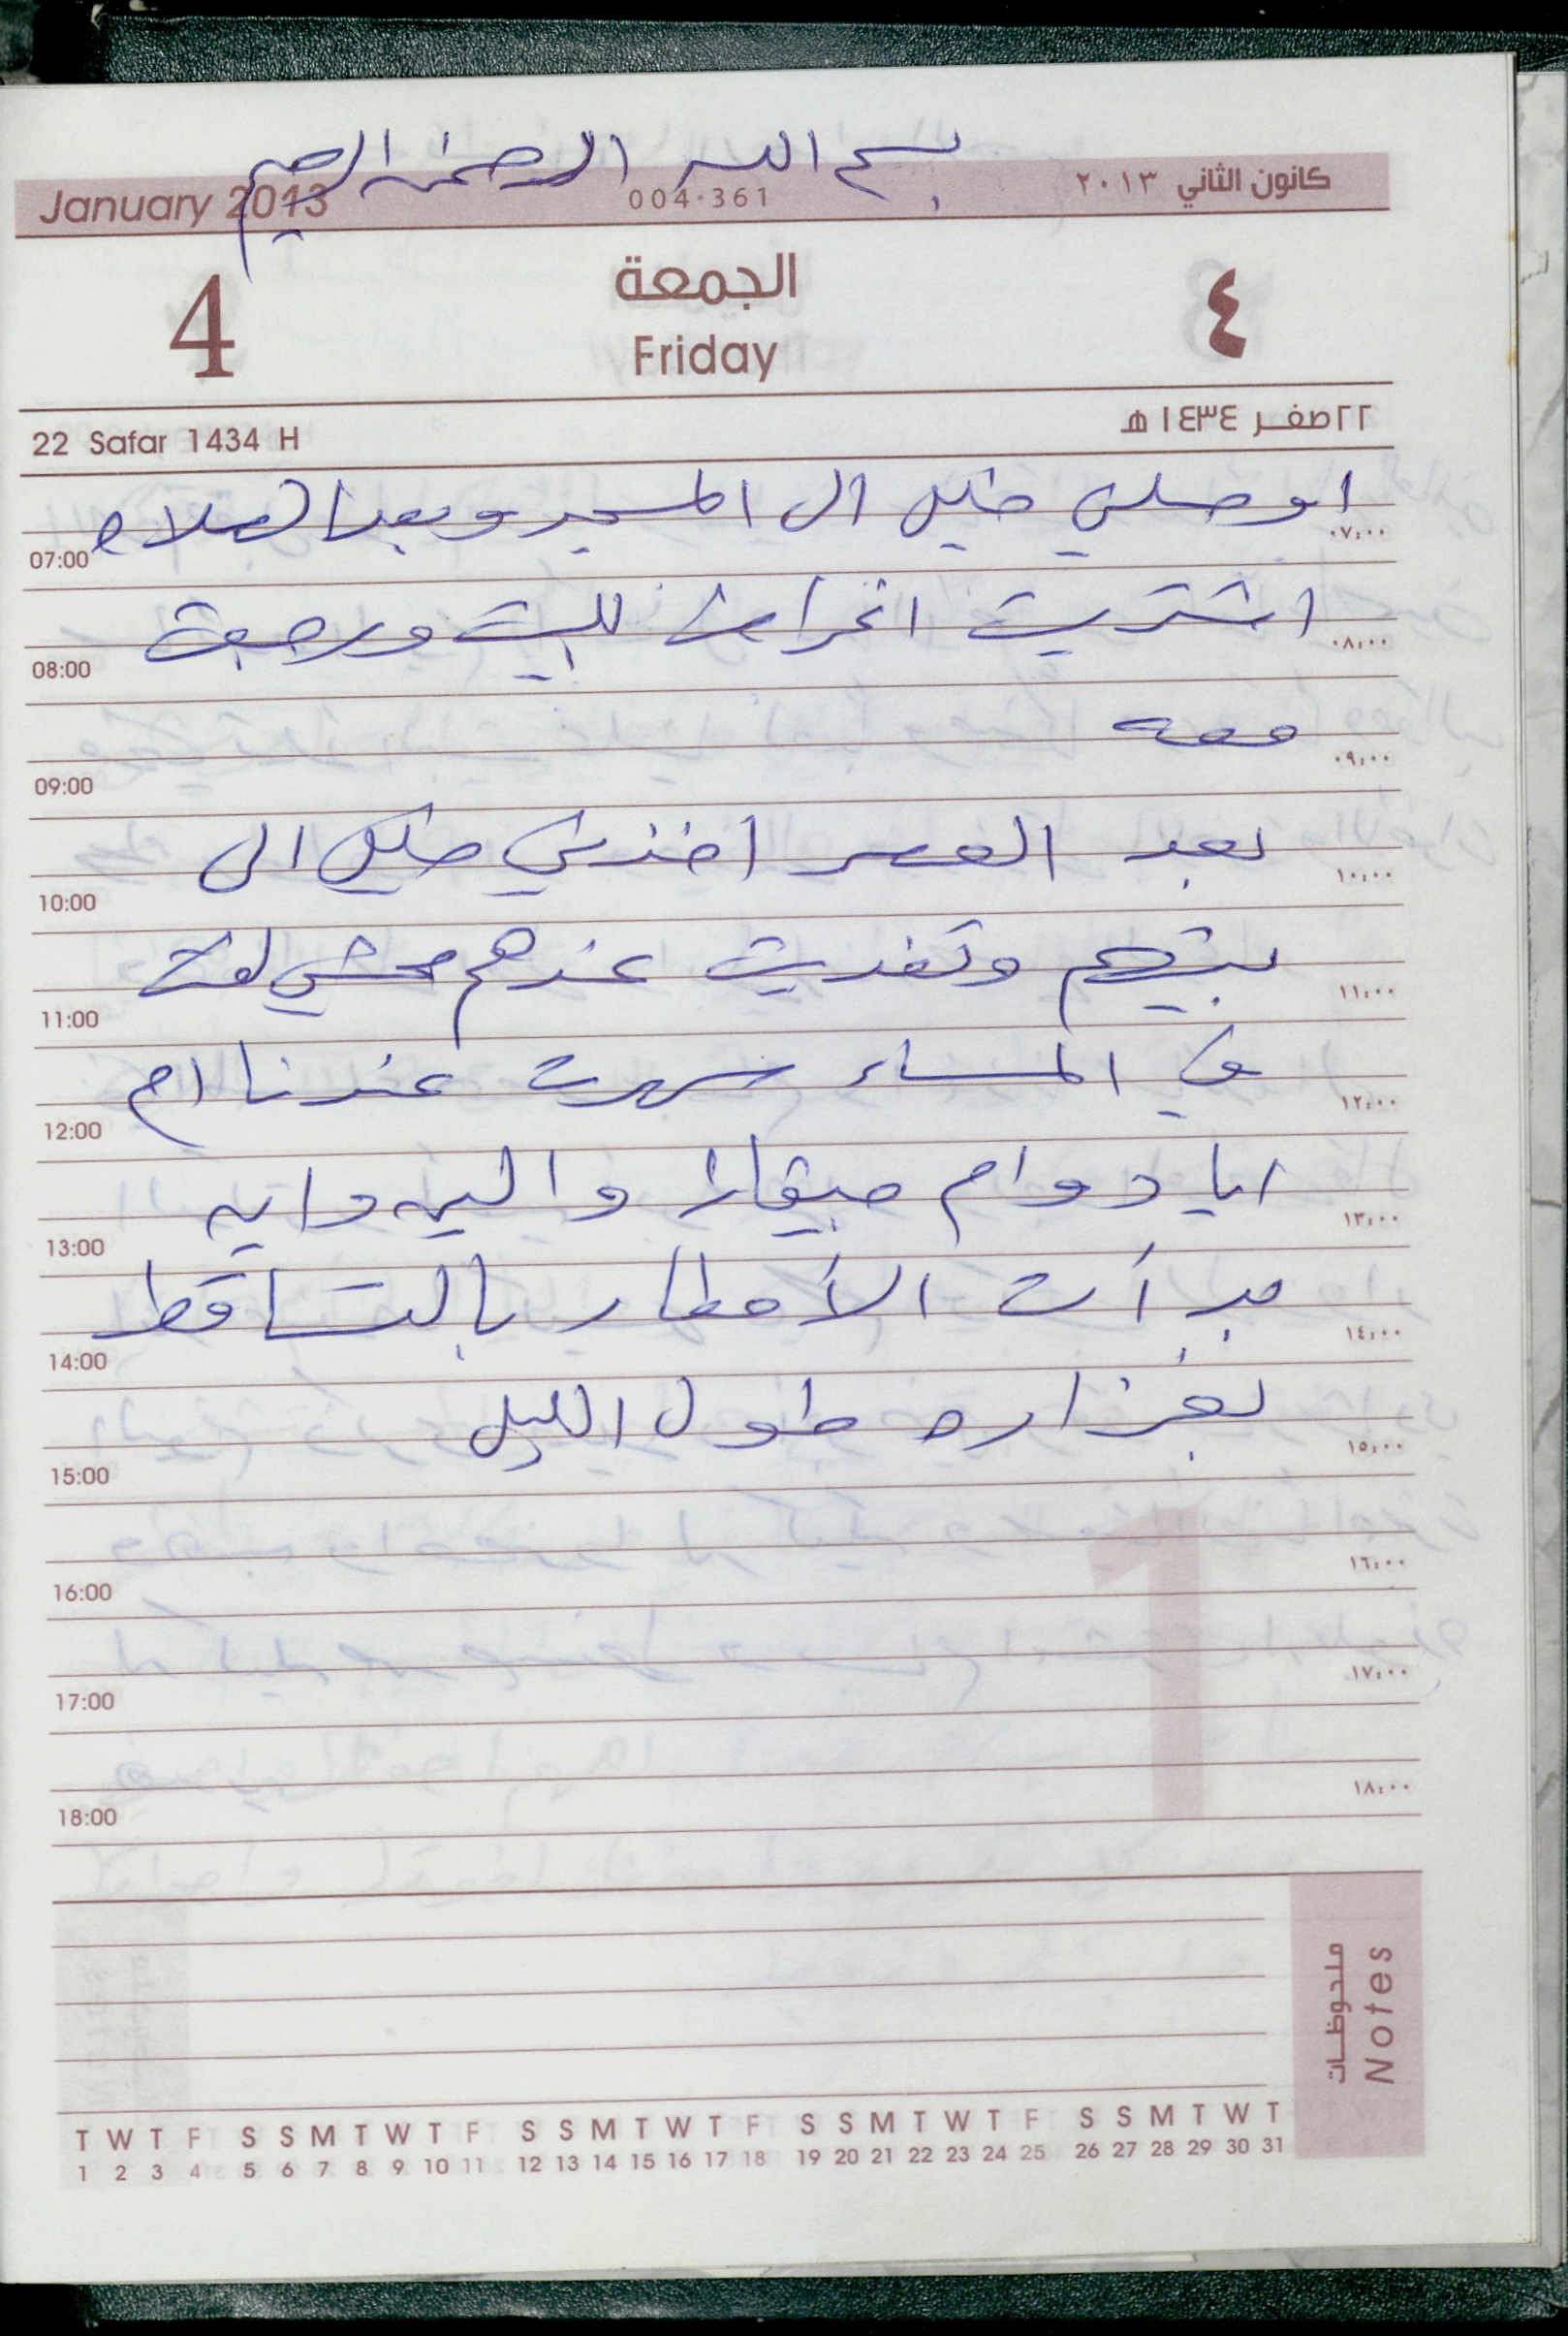 بسم الله الرحمن الرحيم
January 2013 004·361 كانون الثاني ٢٠١٣
4 الجمعة ٤
Friday
22 Safar 1434 H ٢٢ صفر ١٤٣٤ هـ
اوصلني خليل الى المسجد وبعد الصلاه
07:00 ٠٧:٠٠
اشتريت اغراض للبيت ورجعت
08:00 ٠٨:٠٠
معه
09:00 ٠٩:٠٠
بعد العصر اخذني خليل الى
10:00 ١٠:٠٠
بيتهم وتغديت عندهم محشي لفت
11:00 ١١:٠٠
في المساء سهرت عندنا ام
12:00 ١٢:٠٠
اياد وام
13:00 ١٣:٠٠
بدأت الأمطار بالتساقط
14:00 ١٤:٠٠
بغزاره طول الليل
15:00 ١٥:٠٠
16:00 ١٦:٠٠
17:00 ١٧:٠٠
18:00 ١٨:٠٠
1
ملحوظات
Notes
T W T F S S M T W T F S S M T W T F S S M T W T F S S M T W T
1 2 3 4 5 6 7 8 9 10 11 12 13 14 15 16 17 18 19 20 21 22 23 24 25 26 27 28 29 30 31